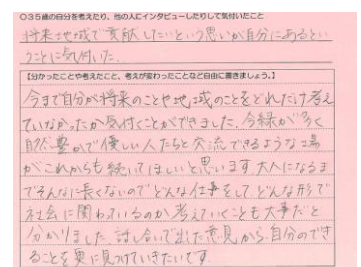 ○35歳の自分を考えたり、他の人にインタビューしたりして気付いたこと
将来地域で貢献したいという思いが自分にあるとい
うことに気付いた。
【分かったことや考えたこと、考えが変わったことなど自由に書きましょう。】
今まで自分が将来のことや地域のことをどれだけ考え
ていなかったか気付くことができました。今緑が多く
自然豊かで優しい人たちと交流できるような場
がこれからも続いてほしいと思います。大人になるま
でそんなに長くないのでどんな仕事をして、どんな形で
社会に関わっているのか考えていくことも大事だと
分かりました。話し合いで出た意見から、自分のでき
ることを更に見つけていきたいです。